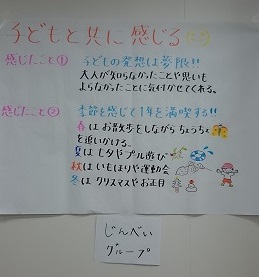 子どもと共に感じる
感じたこと① 子どもの発想は夢限!!
大人が知らなかったことや思いも
よらなかったことに気付かせてくれる。
感じたこと② 季節を感じて1年を満喫する!!
春はお散歩をしながらちょうちょ
を追いかける。
夏は七夕やプール遊び
秋はいもほりや運動会
冬はクリスマスやお正月
じんべい
グループ